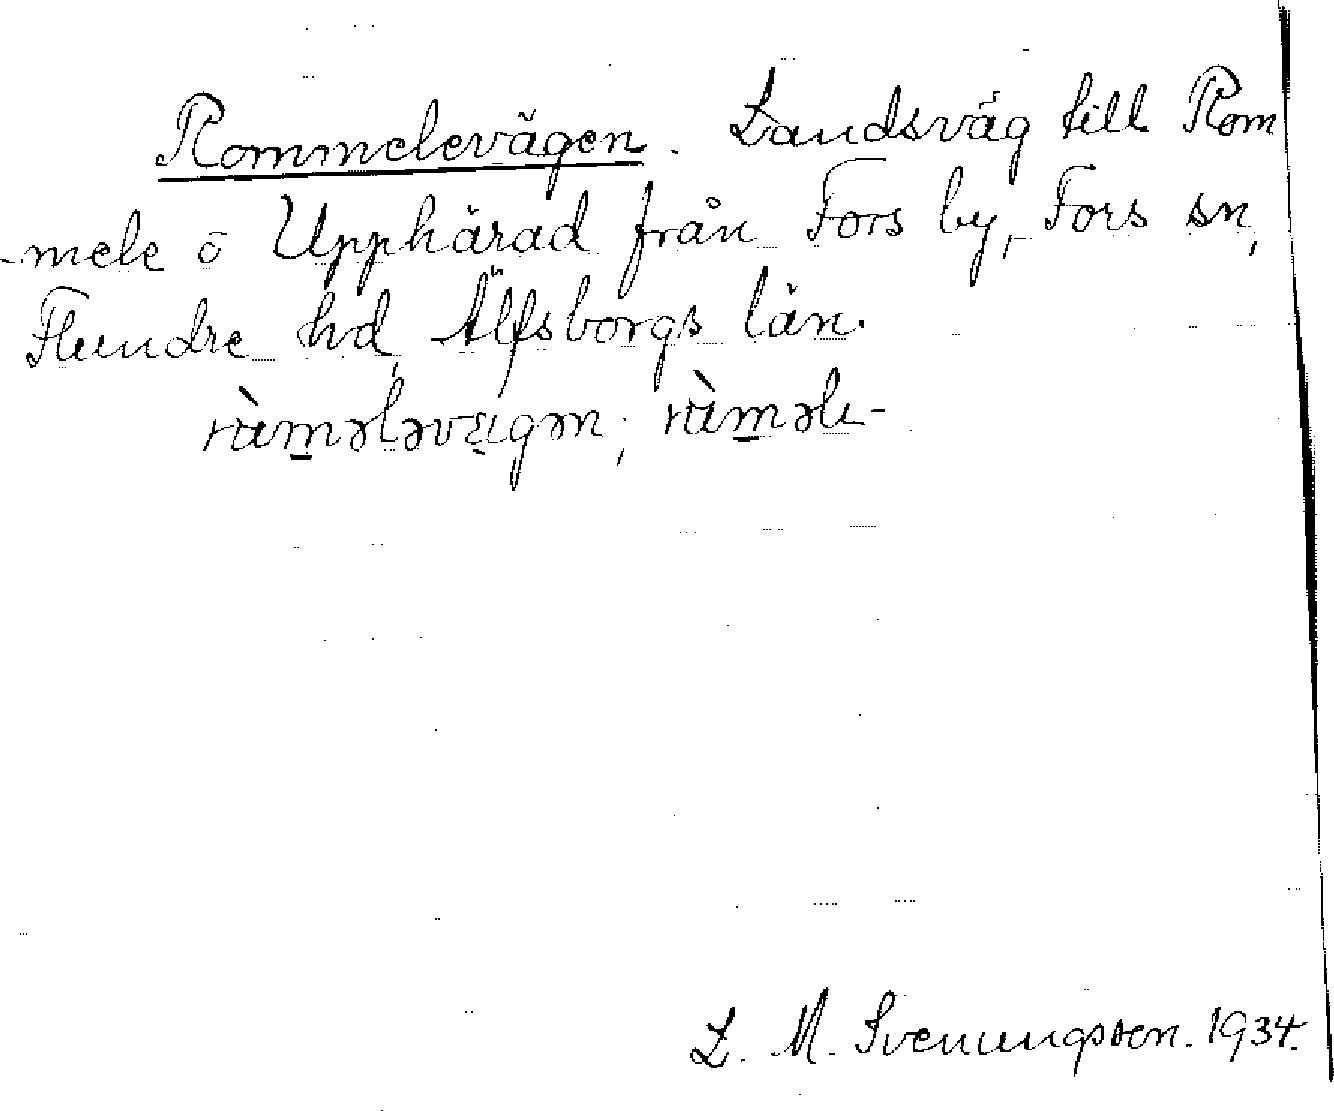 Rommelevägen. Landsväg till Rom
-mele o Upphärad från Fors by, Fors sn,
Flundre hd, Älfsborgs län.
ràmələvägən; ràməle-
L. M. Svenungsson. 1934.